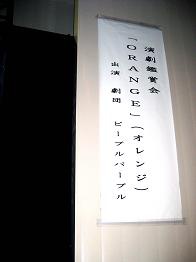 演劇鑑賞会
「ORANGE」(オレンジ)
出演 劇団 ピープルパープル